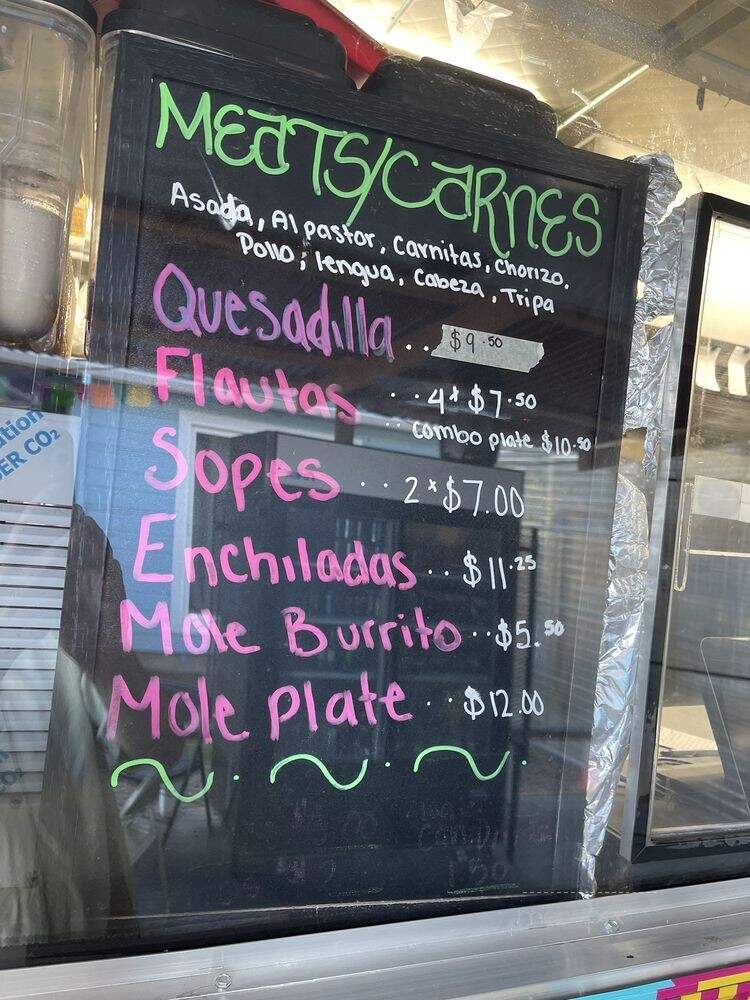 MEATS/CARNES
Asada, Al pastor, Carnitas, Chorizo,
Pollo, lengua, Cabeza, Tripa
Quesadilla .. $9.50
Flautas .. 4x $7.50
.. combo plate $10.50
Sopes .. 2x $7.00
Enchiladas .. $11.25
Mole Burrito .. $5.50
Mole Plate .. $12.00
ER CO₂